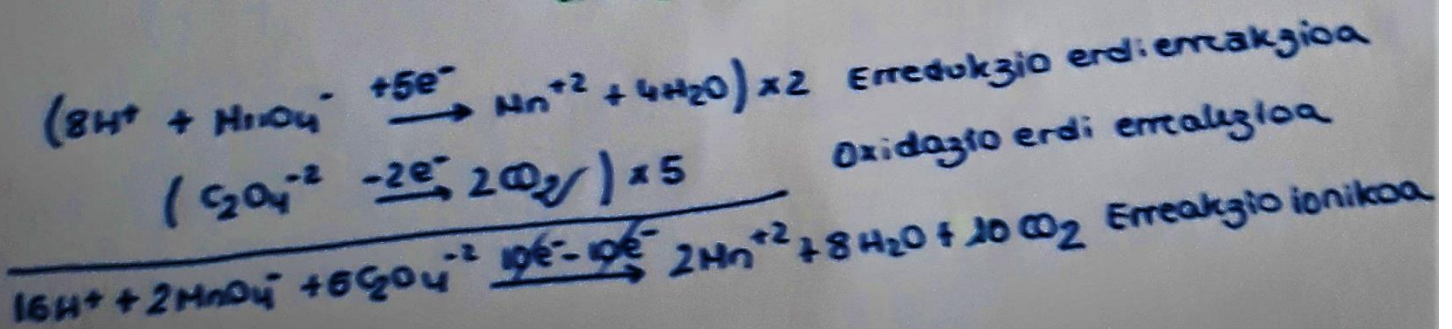 (8H⁺ + MnO₄⁻ +5e⁻ → Mn⁺² + 4H₂O) x2 Erredukzio erdierreakzioa
(C₂O₄⁻² -2e⁻ → 2CO₂) x5 Oxidazio erdi erreakzioa
16H⁺ + 2MnO₄⁻ + 5C₂O₄⁻² 10e⁻ - 10e⁻ → 2Mn⁺² + 8H₂O + 10CO₂ Erreakzio ionikoa